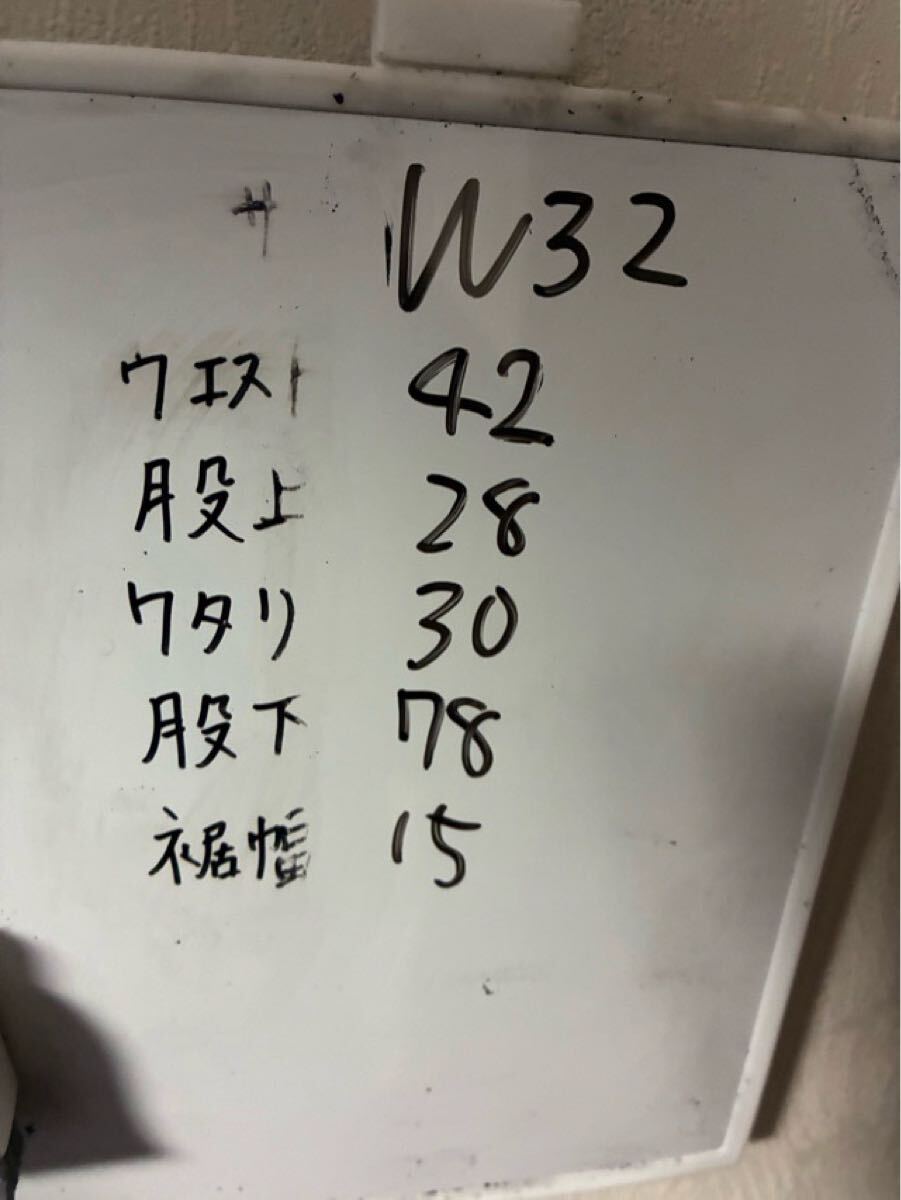 サ W32
ウエスト 42
股上 28
ワタリ 30
股下 78
裾幅 15